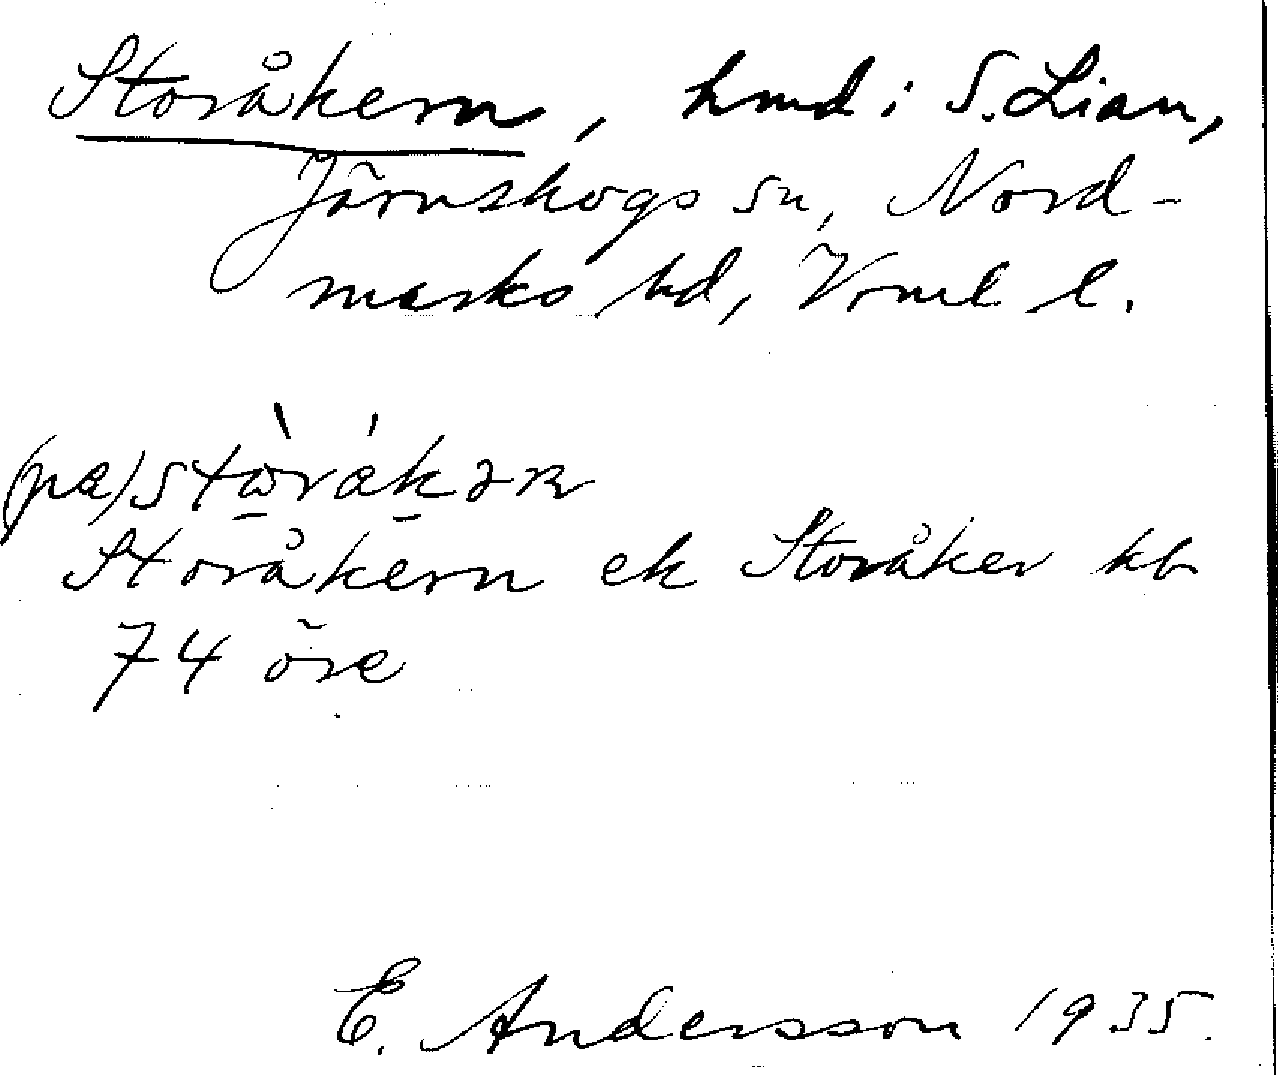 Storåkern, hmd i S. Lian,
Järnskogs sn, Nord-
marks hd, Vrml l.
(pɑ) stωråkəɲ
Storåkern ek Storåker kb
74 öre
E. Andersson 1935.